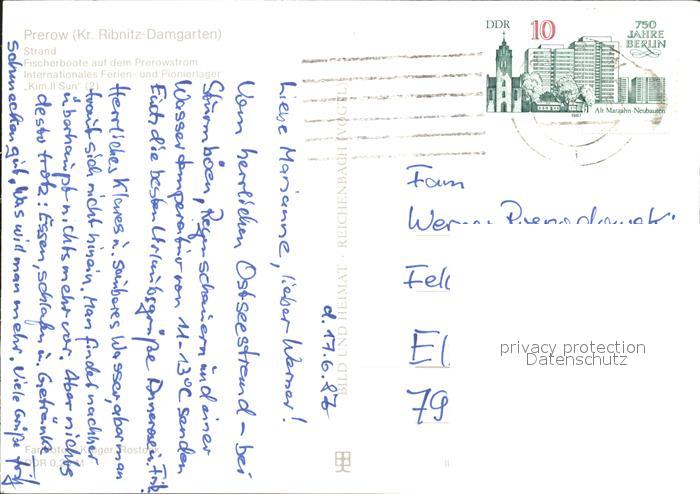 Prerow (Kr. Ribnitz-Damgarten)
Strand
Fischerboote auf dem Prerowstrom
Internationales Ferien- und Pionierlager
„Kim Il Sun" (2)
DDR 10 750
JAHRE
BERLIN
Alt Marzahn Neubauten
1987
d. 17.6.87
Liebe Marianne, lieber Werner!
Vom herrlichen Ostseestrand – bei
Sturmböen, Regenschauern und einer
Wassertemperatur von 11-13°C senden
Euch die besten Urlaubsgrüße
Herrliches klares u. sauberes Wasser, aber man
traut sich nicht hinein. Man findet nachher
überhaupt nichts mehr vor. Aber nichts
desto trotz: Essen, schlafen u. Getränke
schmecken gut, was will man mehr. Viele Grüße
BILD UND HEIMAT · REICHENBACH (VOGTL
Fam
Werner
Fell
El
79
privacy protection
Datenschutz